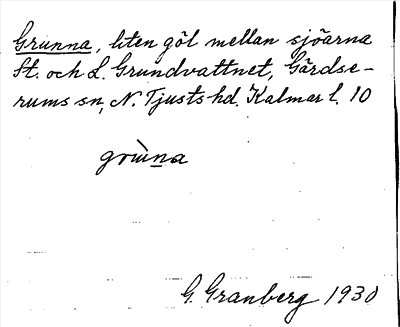 Grunna, liten göl mellan sjöarna
St. och L. Grundvattnet, Gärdse-
rums sn, N. Tjusts hd. Kalmar l. 10
G. Granberg 1930